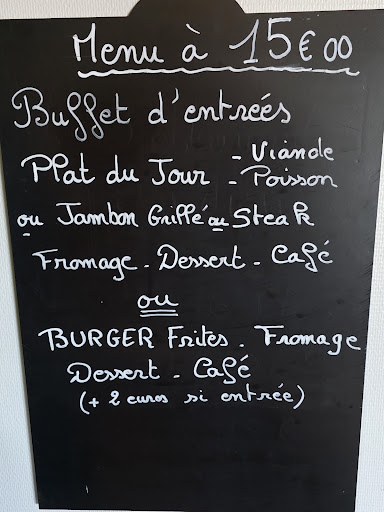 Menu à 15€00
Buffet d'entrées
Plat du Jour - Viande
- Poisson
ou Jambon Grillé ou Steak
Fromage - Dessert - Café
ou
BURGER Frites - Fromage
Dessert - Café
(+ 2 euros si entrée)